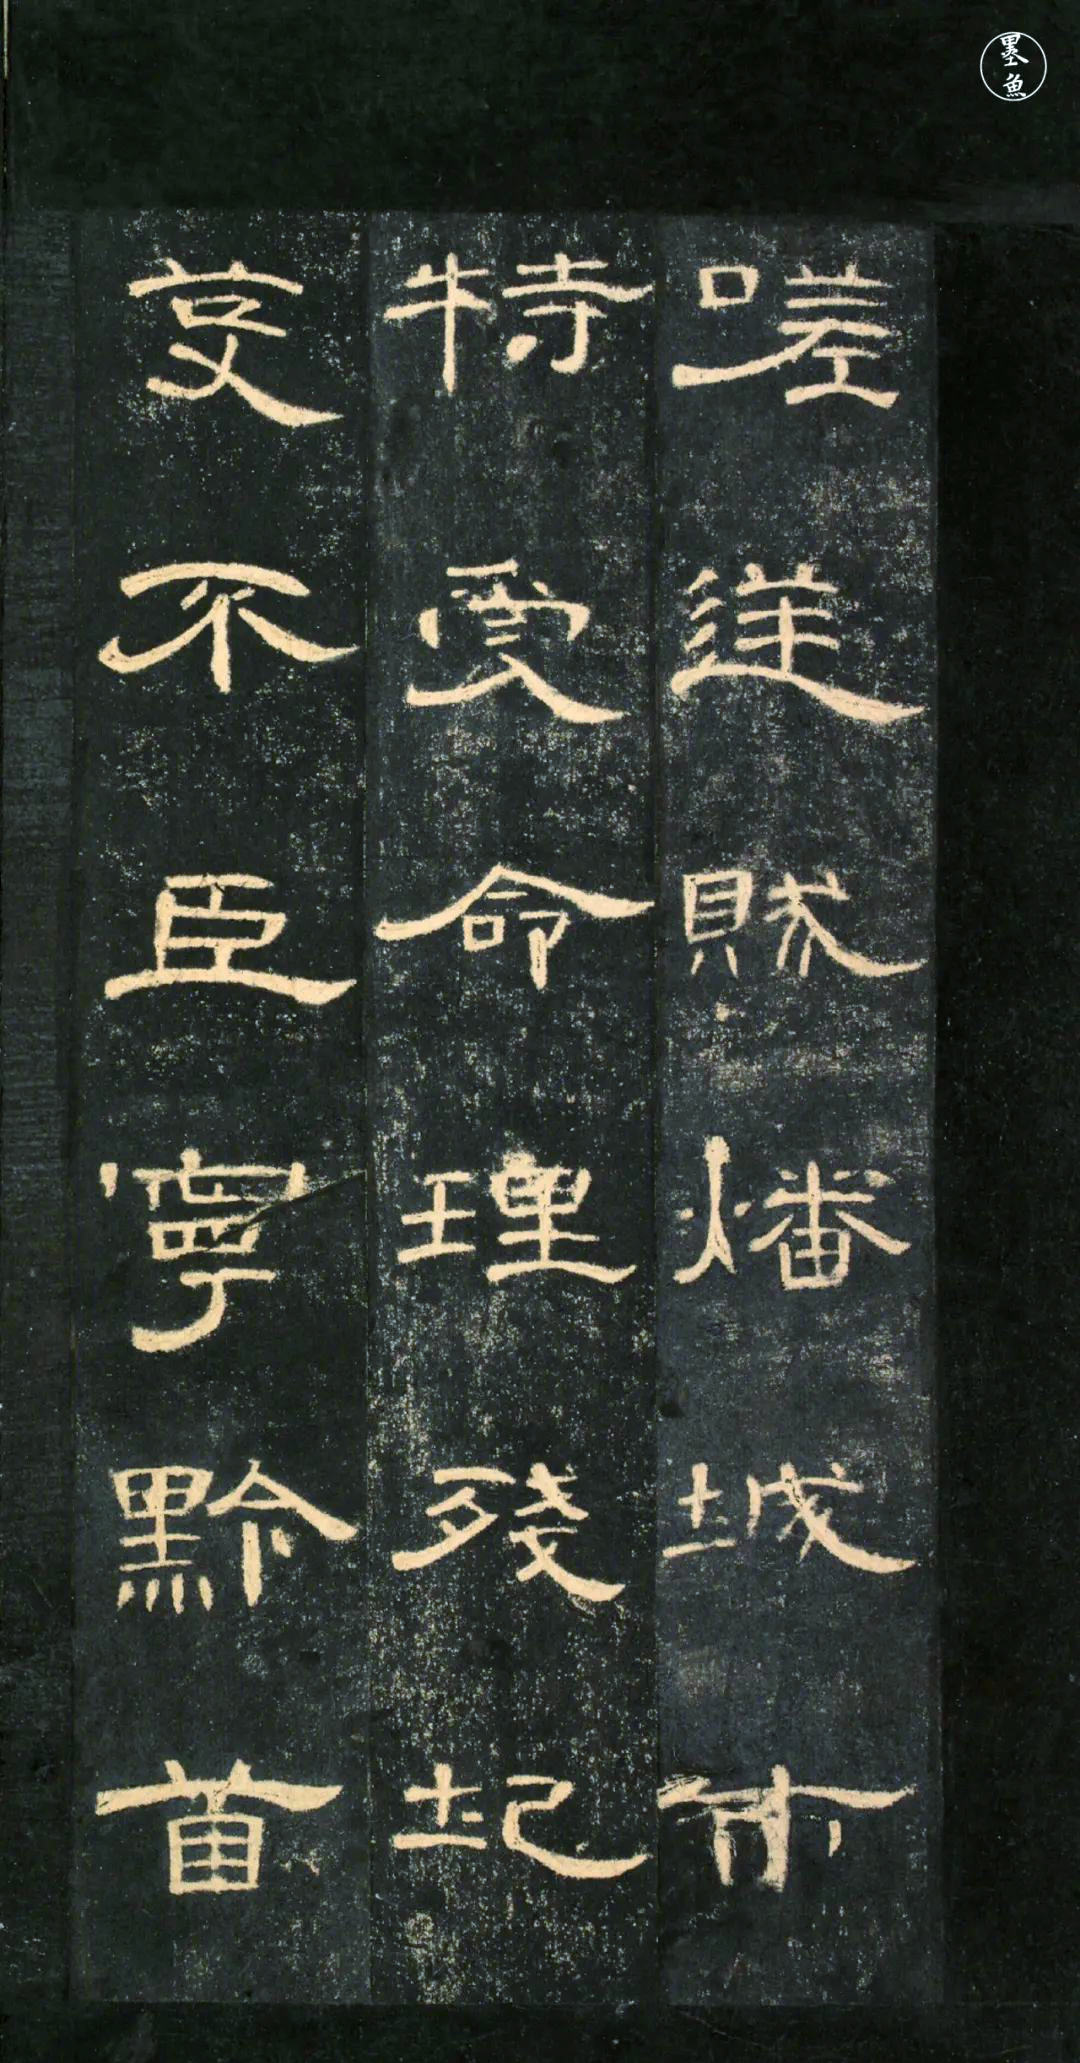 嗟逆賊燔城市
特受命理殘圯
芟不臣寧黔首
墨魚